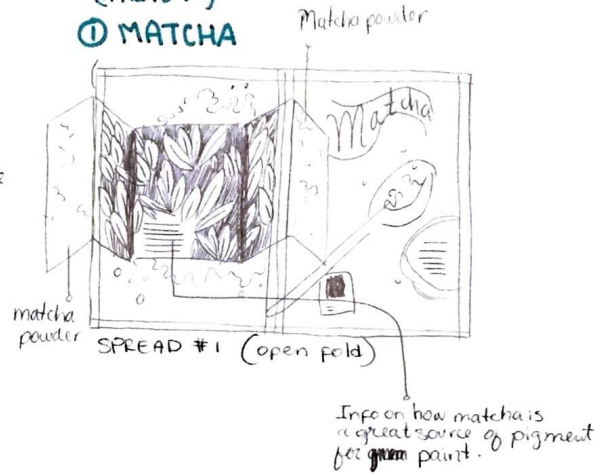 ① MATCHA
Matcha powder
Matcha
matcha
powder
SPREAD #1 (open fold)
Info on how matcha is
a great source of pigment
for green paint.